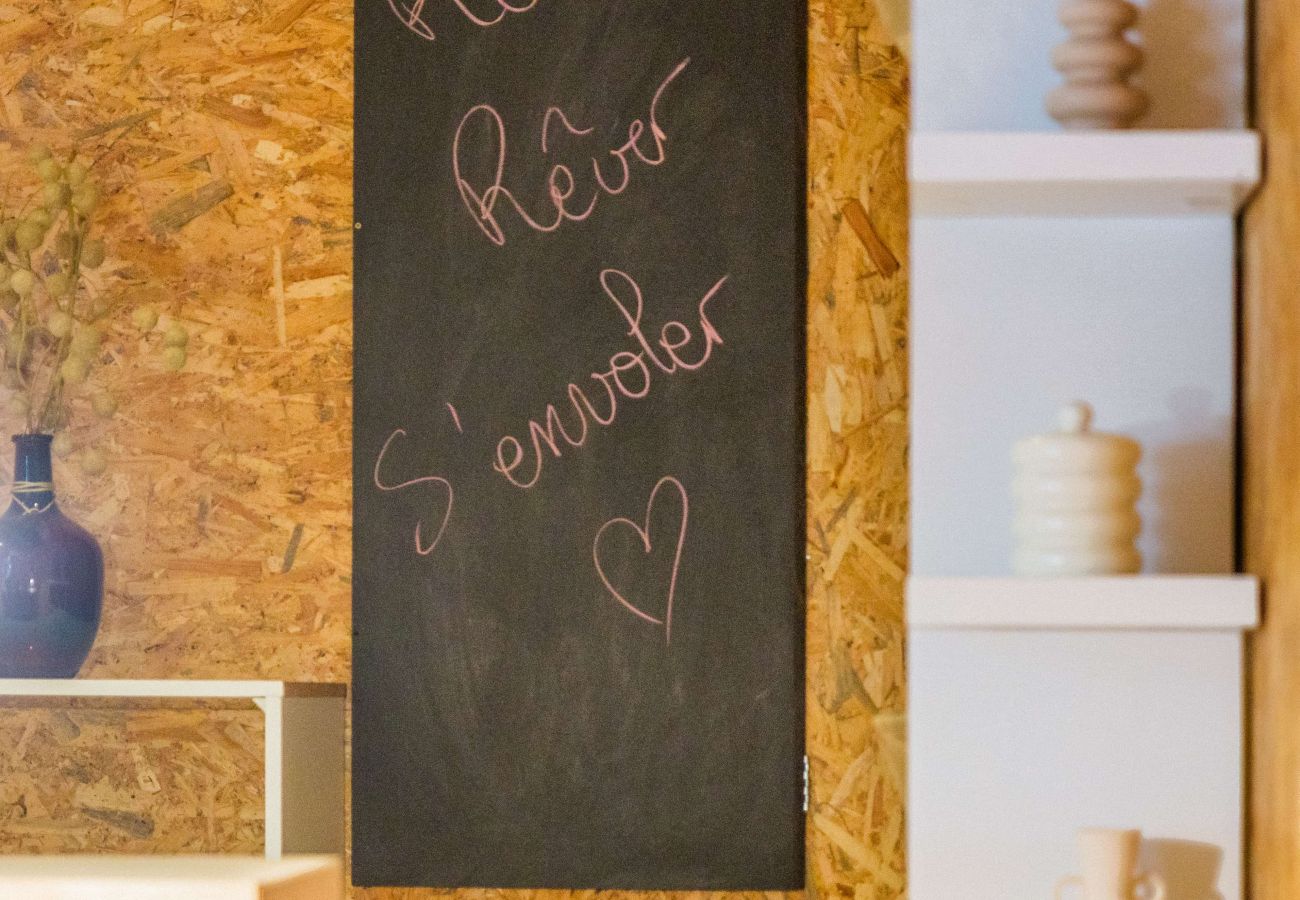 Rêver
S'envoler